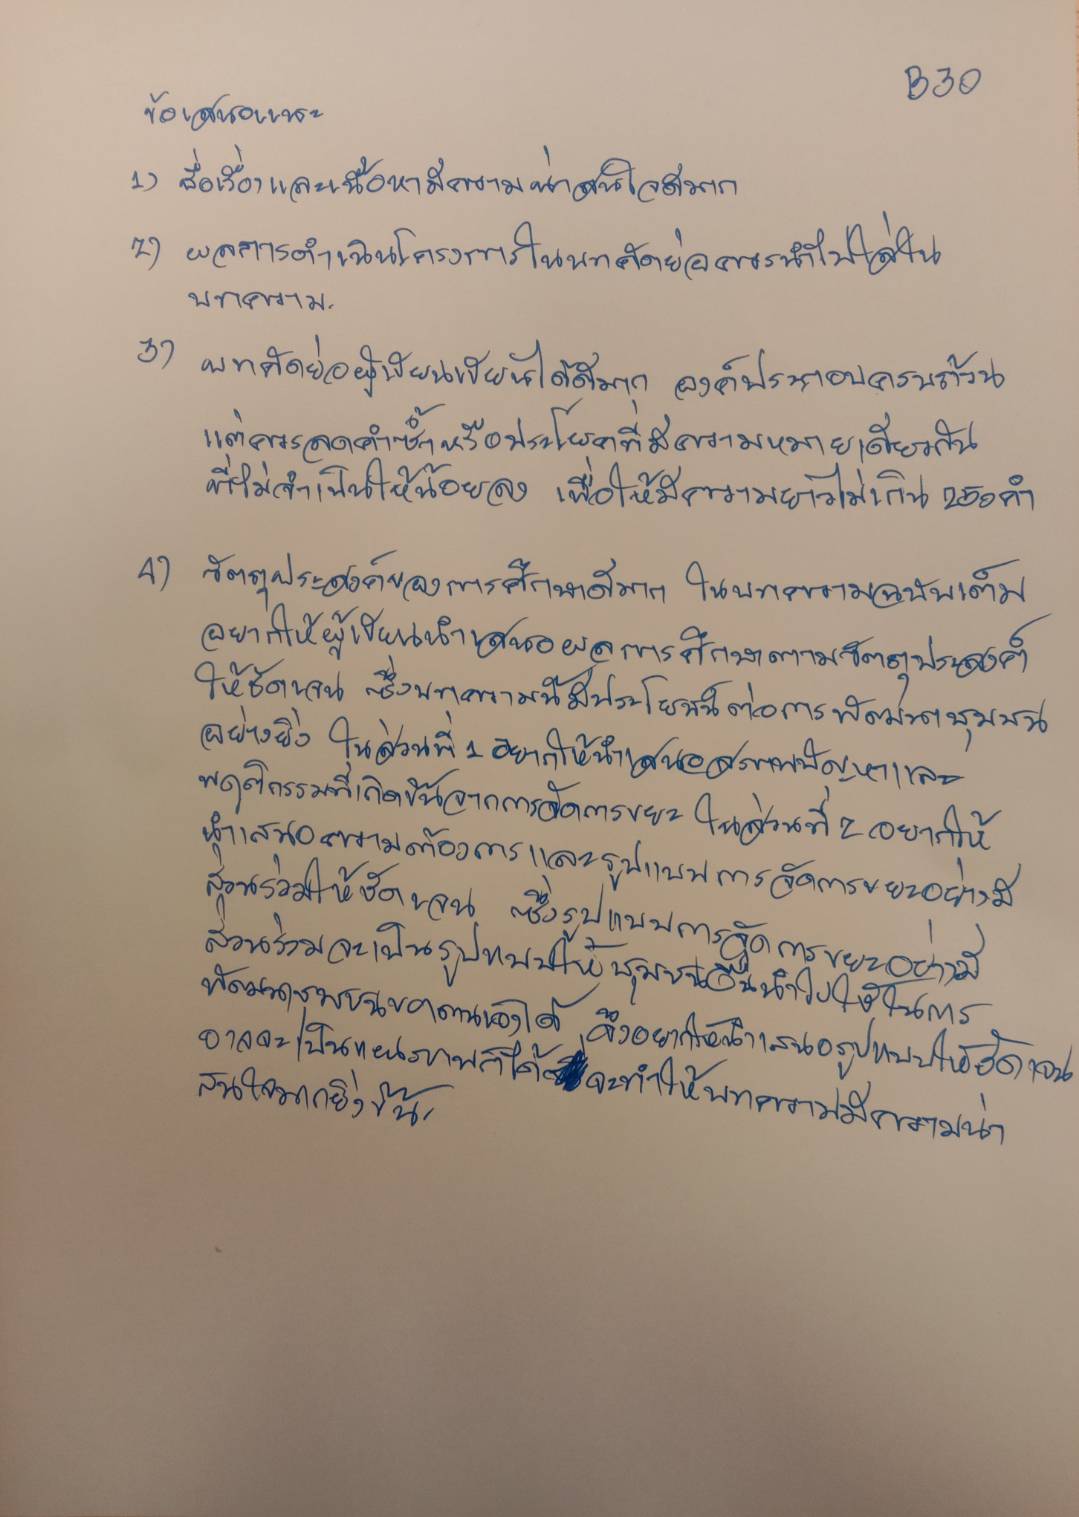 B30
ข้อเสนอแนะ
1) ชื่อเรื่องและเนื้อหามีความน่าสนใจดีมาก
2) ผลการดำเนินโครงการในบทคัดย่อควรนำไปใส่ใน
บทความ.
3) บทคัดย่อผู้เขียนเขียนได้ดีมาก องค์ประกอบครบถ้วน
แต่ควรลดคำซ้ำหรือประโยคที่มีความหมายเดียวกัน
ที่ไม่จำเป็นให้น้อยลง เพื่อให้มีความยาวไม่เกิน 250 คำ
4) วัตถุประสงค์ของการศึกษาดีมาก ในบทความฉบับเต็ม
อยากให้ผู้เขียนนำเสนอผลการศึกษาตามวัตถุประสงค์
ให้ชัดเจน ซึ่งบทความนี้มีประโยชน์ต่อการพัฒนาชุมชน
อย่างยิ่ง ในส่วนที่ 1 อยากให้นำเสนอสภาพปัญหาและ
พฤติกรรมที่เกิดขึ้นจากการจัดการขยะ ในส่วนที่ 2 อยากให้
นำเสนอความต้องการและรูปแบบการจัดการขยะอย่างมี
ส่วนร่วมให้ชัดเจน ซึ่งรูปแบบการจัดการขยะอย่างมี
ส่วนร่วมจะเป็นรูปแบบให้ชุมชนอื่นนำไปใช้ในการ
พัฒนาชุมชนของตนเองได้ จึงอยากให้นำเสนอรูปแบบให้ชัดเจน
อาจจะเป็นแผนภาพก็ได้ จะทำให้บทความมีความน่า
สนใจมากยิ่งขึ้น.